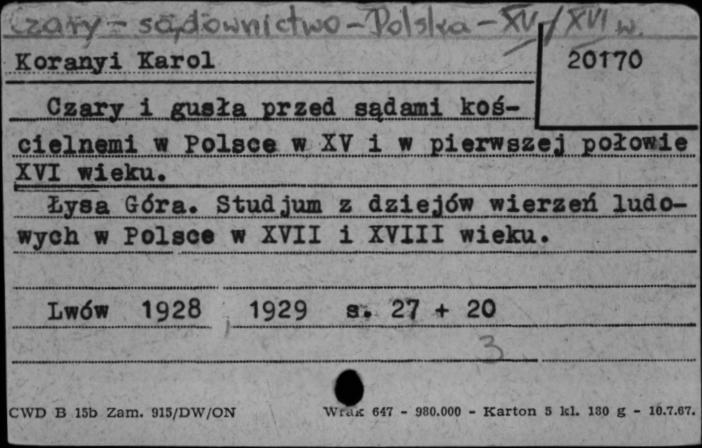 Czary - sądownictwo - Polska - XV/XVI w.
Koranyi Karol 20170
Czary i gusła przed sądami koś-
cielnemi w Polsce w XV i w pierwszej połowie
XVI wieku.
Łysa Góra. Studjum z dziejów wierzeń ludo-
wych w Polsce w XVII i XVIII wieku.
Lwów 1928 1929 s. 27 + 20
3
CWD B 15b Zam. 915/DW/ON W-rak 647 - 980.000 - Karton 5 kl. 180 g - 10.7.67.